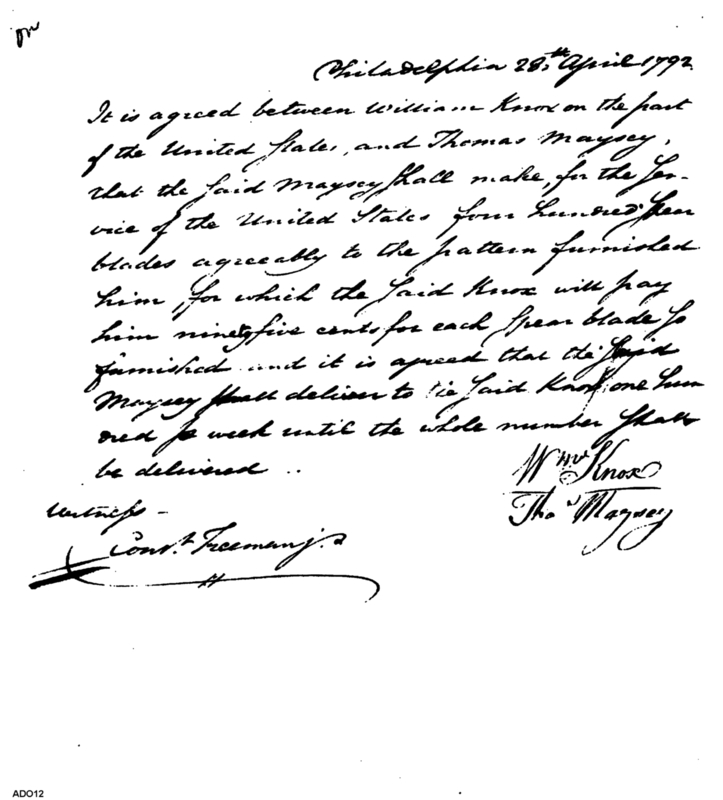 Philadelphia 28th April 1792
It is agreed between William Knox on the part
of the United States, and Thomas Maysey,
that the said Maysey shall make, for the Ser-
vice of the United States four hundred spear
blades agreeably to the pattern furnished
him, for which the said Knox will pay
him ninety five cents for each spear blade so
furnished and it is agreed that the said
Maysey shall deliver to the said Knox one hun
dred week until the whole number shall
be delivered ..
Wm Knox
Thos Maysey
Witness -
Const. Freeman jr.
ADO12